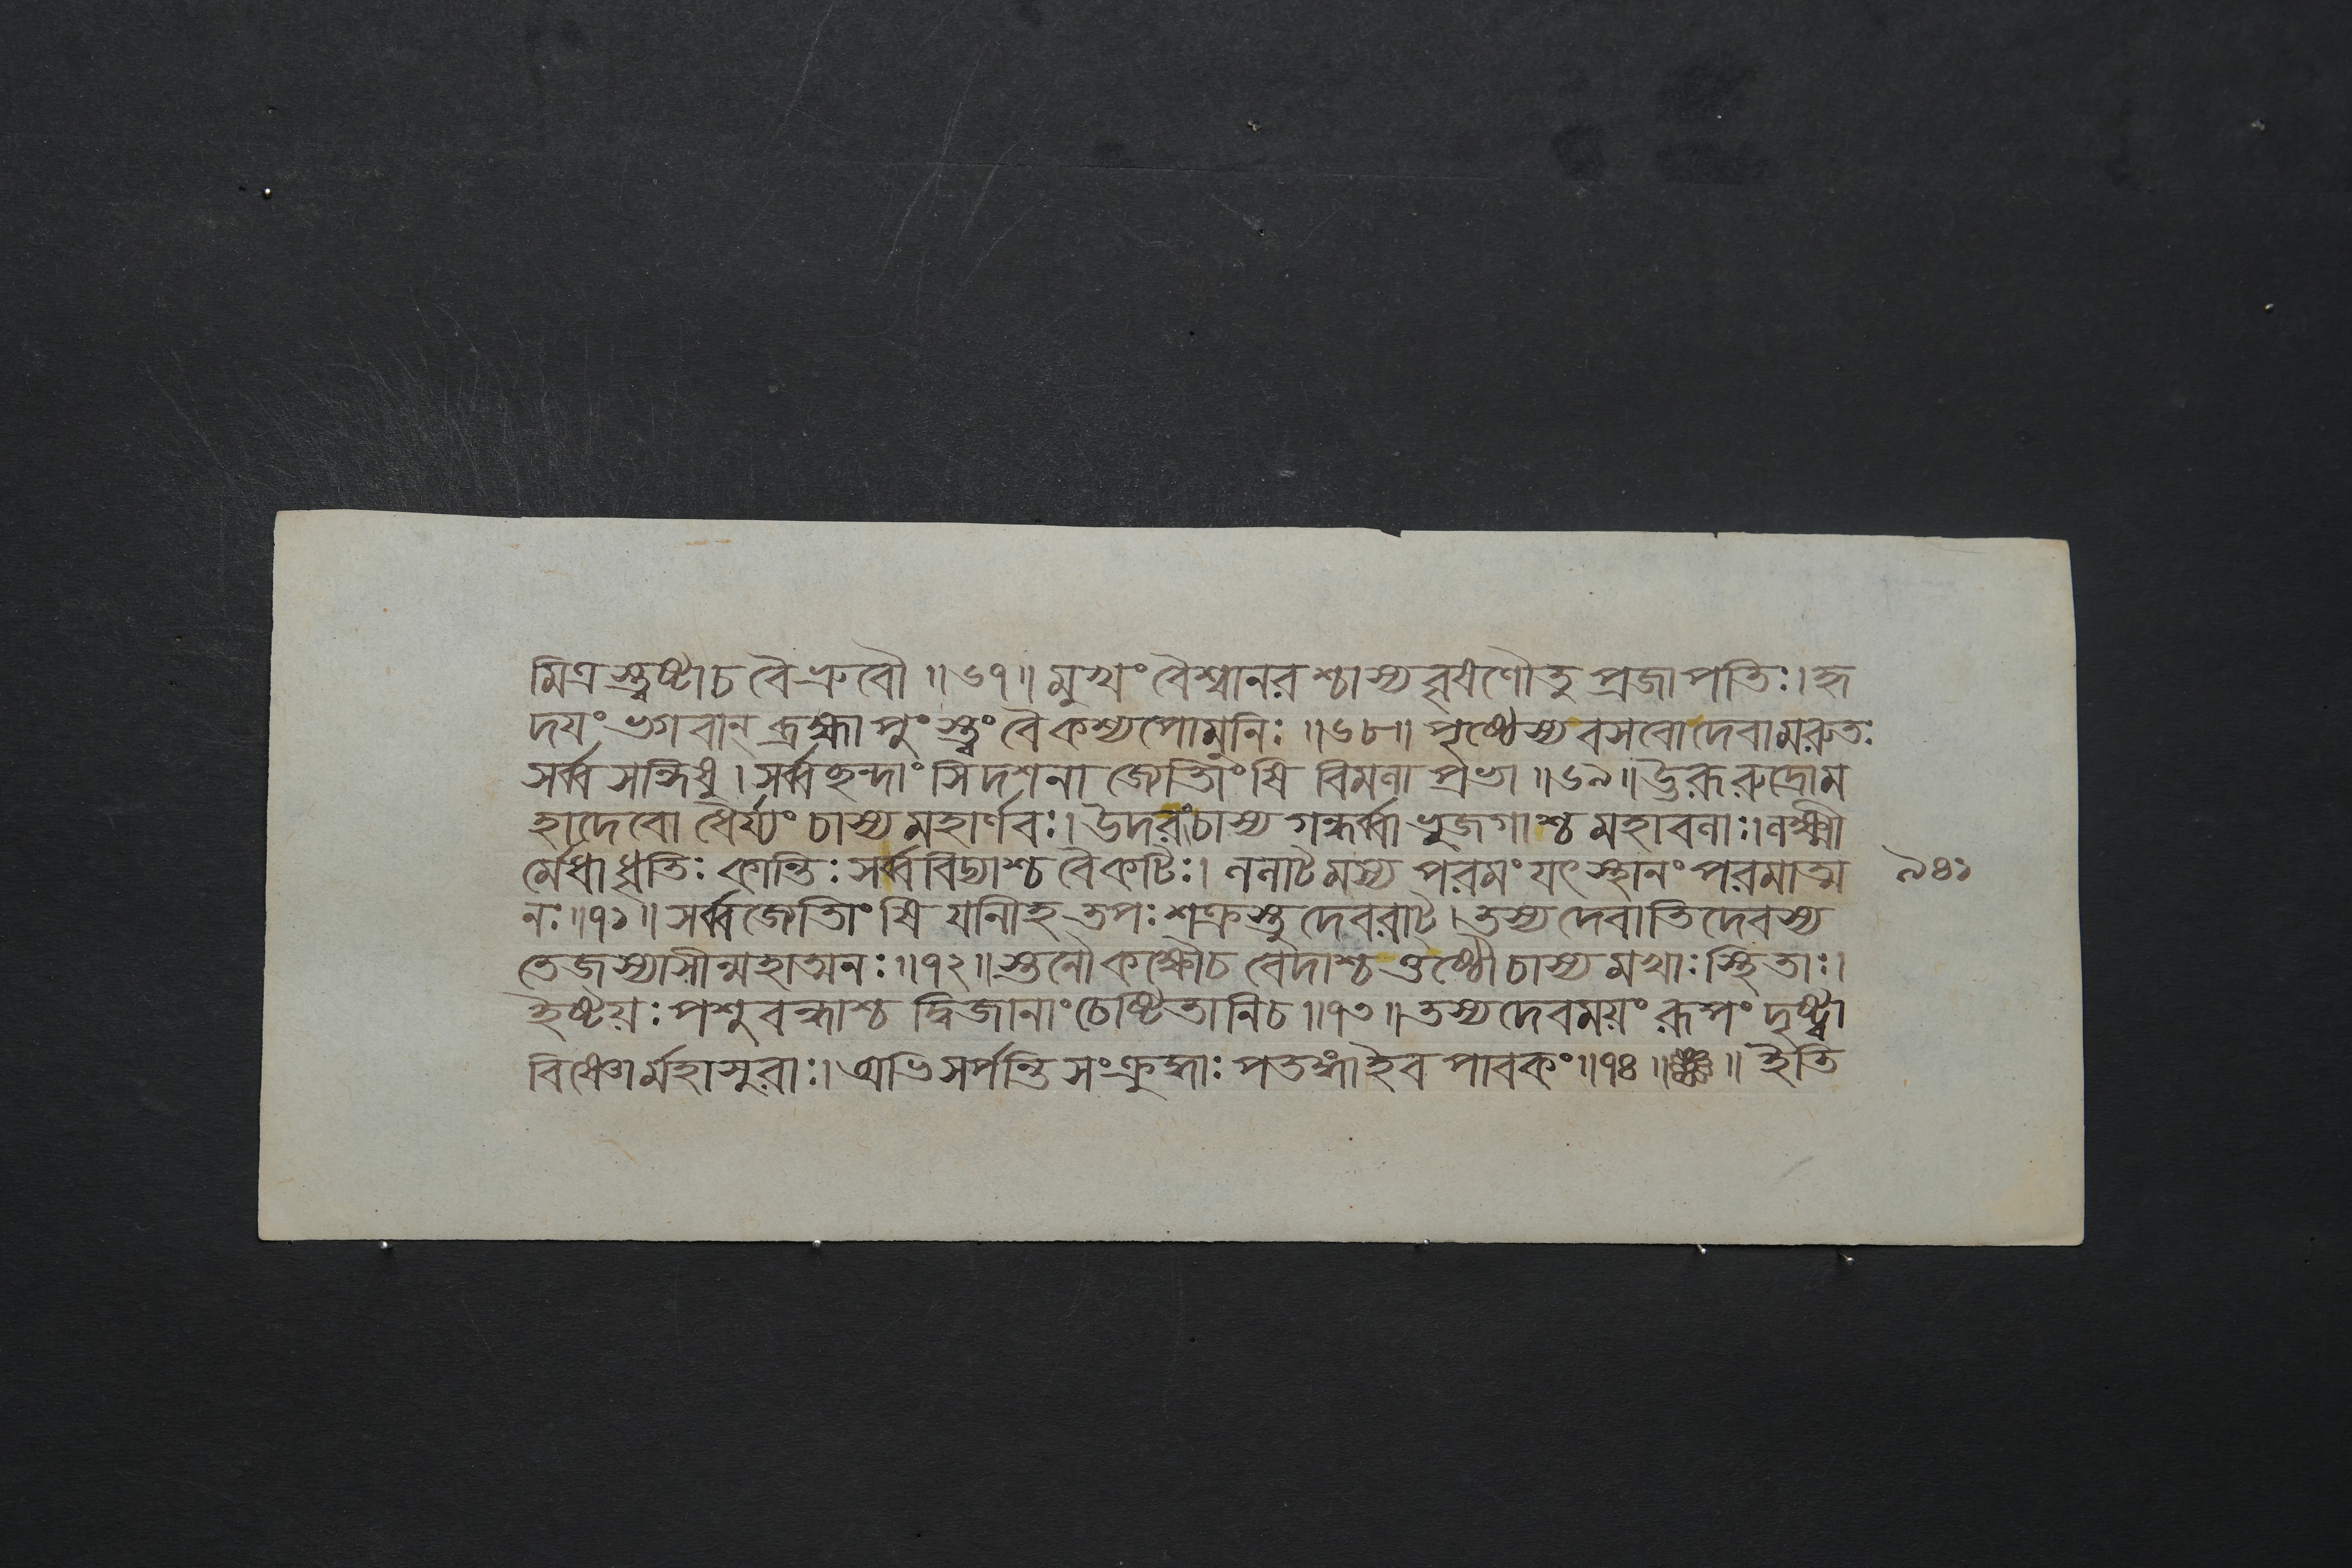 মিত্রস্ত্বষ্টাচ বৈ ভ্রুবৌ ॥৬৭॥ মুখং বৈশ্বানরশ্চাস্য বৃষণৌতু প্রজাপতিঃ। হৃ
দয়ং ভগবান্ ব্রহ্মা পুংস্ত্বং বৈ কশ্যপোমুনিঃ ॥৬৮॥ পৃষ্ঠেস্য বসবোদেবামরুতঃ
সর্ব্বসন্ধিষু। সর্ব্বছন্দাংসি দশনা জ্যোতিংষি বিমলা প্রভা ॥৬৯॥ উরূ রুদ্রোম
হাদেবো ধৈর্য্যং চাস্য মহার্ণবঃ। উদরংচাস্য গন্ধর্ব্বা ভুজগাশ্চ মহাবলাঃ। লক্ষ্মী
র্মেধাধৃতিঃ কান্তিঃ সর্ব্ববিদ্যাশ্চ বৈ কটিঃ। ললাটমস্য পরমং যৎ স্থানং পরমাত্ম ৯৪১
নঃ ॥৭১॥ সর্ব্বজ্যোতিংষি যানীহ তপঃ শক্রস্তু দেবরাট্। তস্য দেবাতিদেবস্য
তেজস্যাসীন্মহাত্মনঃ ॥৭২॥ স্তনৌ কক্ষৌচ বেদাশ্চ ওষ্ঠৌচাস্য মখাঃ স্থিতাঃ।
ইষ্টয়ঃ পশুবন্ধাশ্চ দ্বিজানাং চেষ্টিতানিচ ॥৭৩॥ তস্য দেবময়ং রূপং দৃষ্ট্বা
বিষ্ণোর্মহাসুরাঃ। অভিসর্পন্তি সংক্রুদ্ধাঃ পতঙ্গা ইব পাবকং ॥৭৪॥ ॥ ইতি